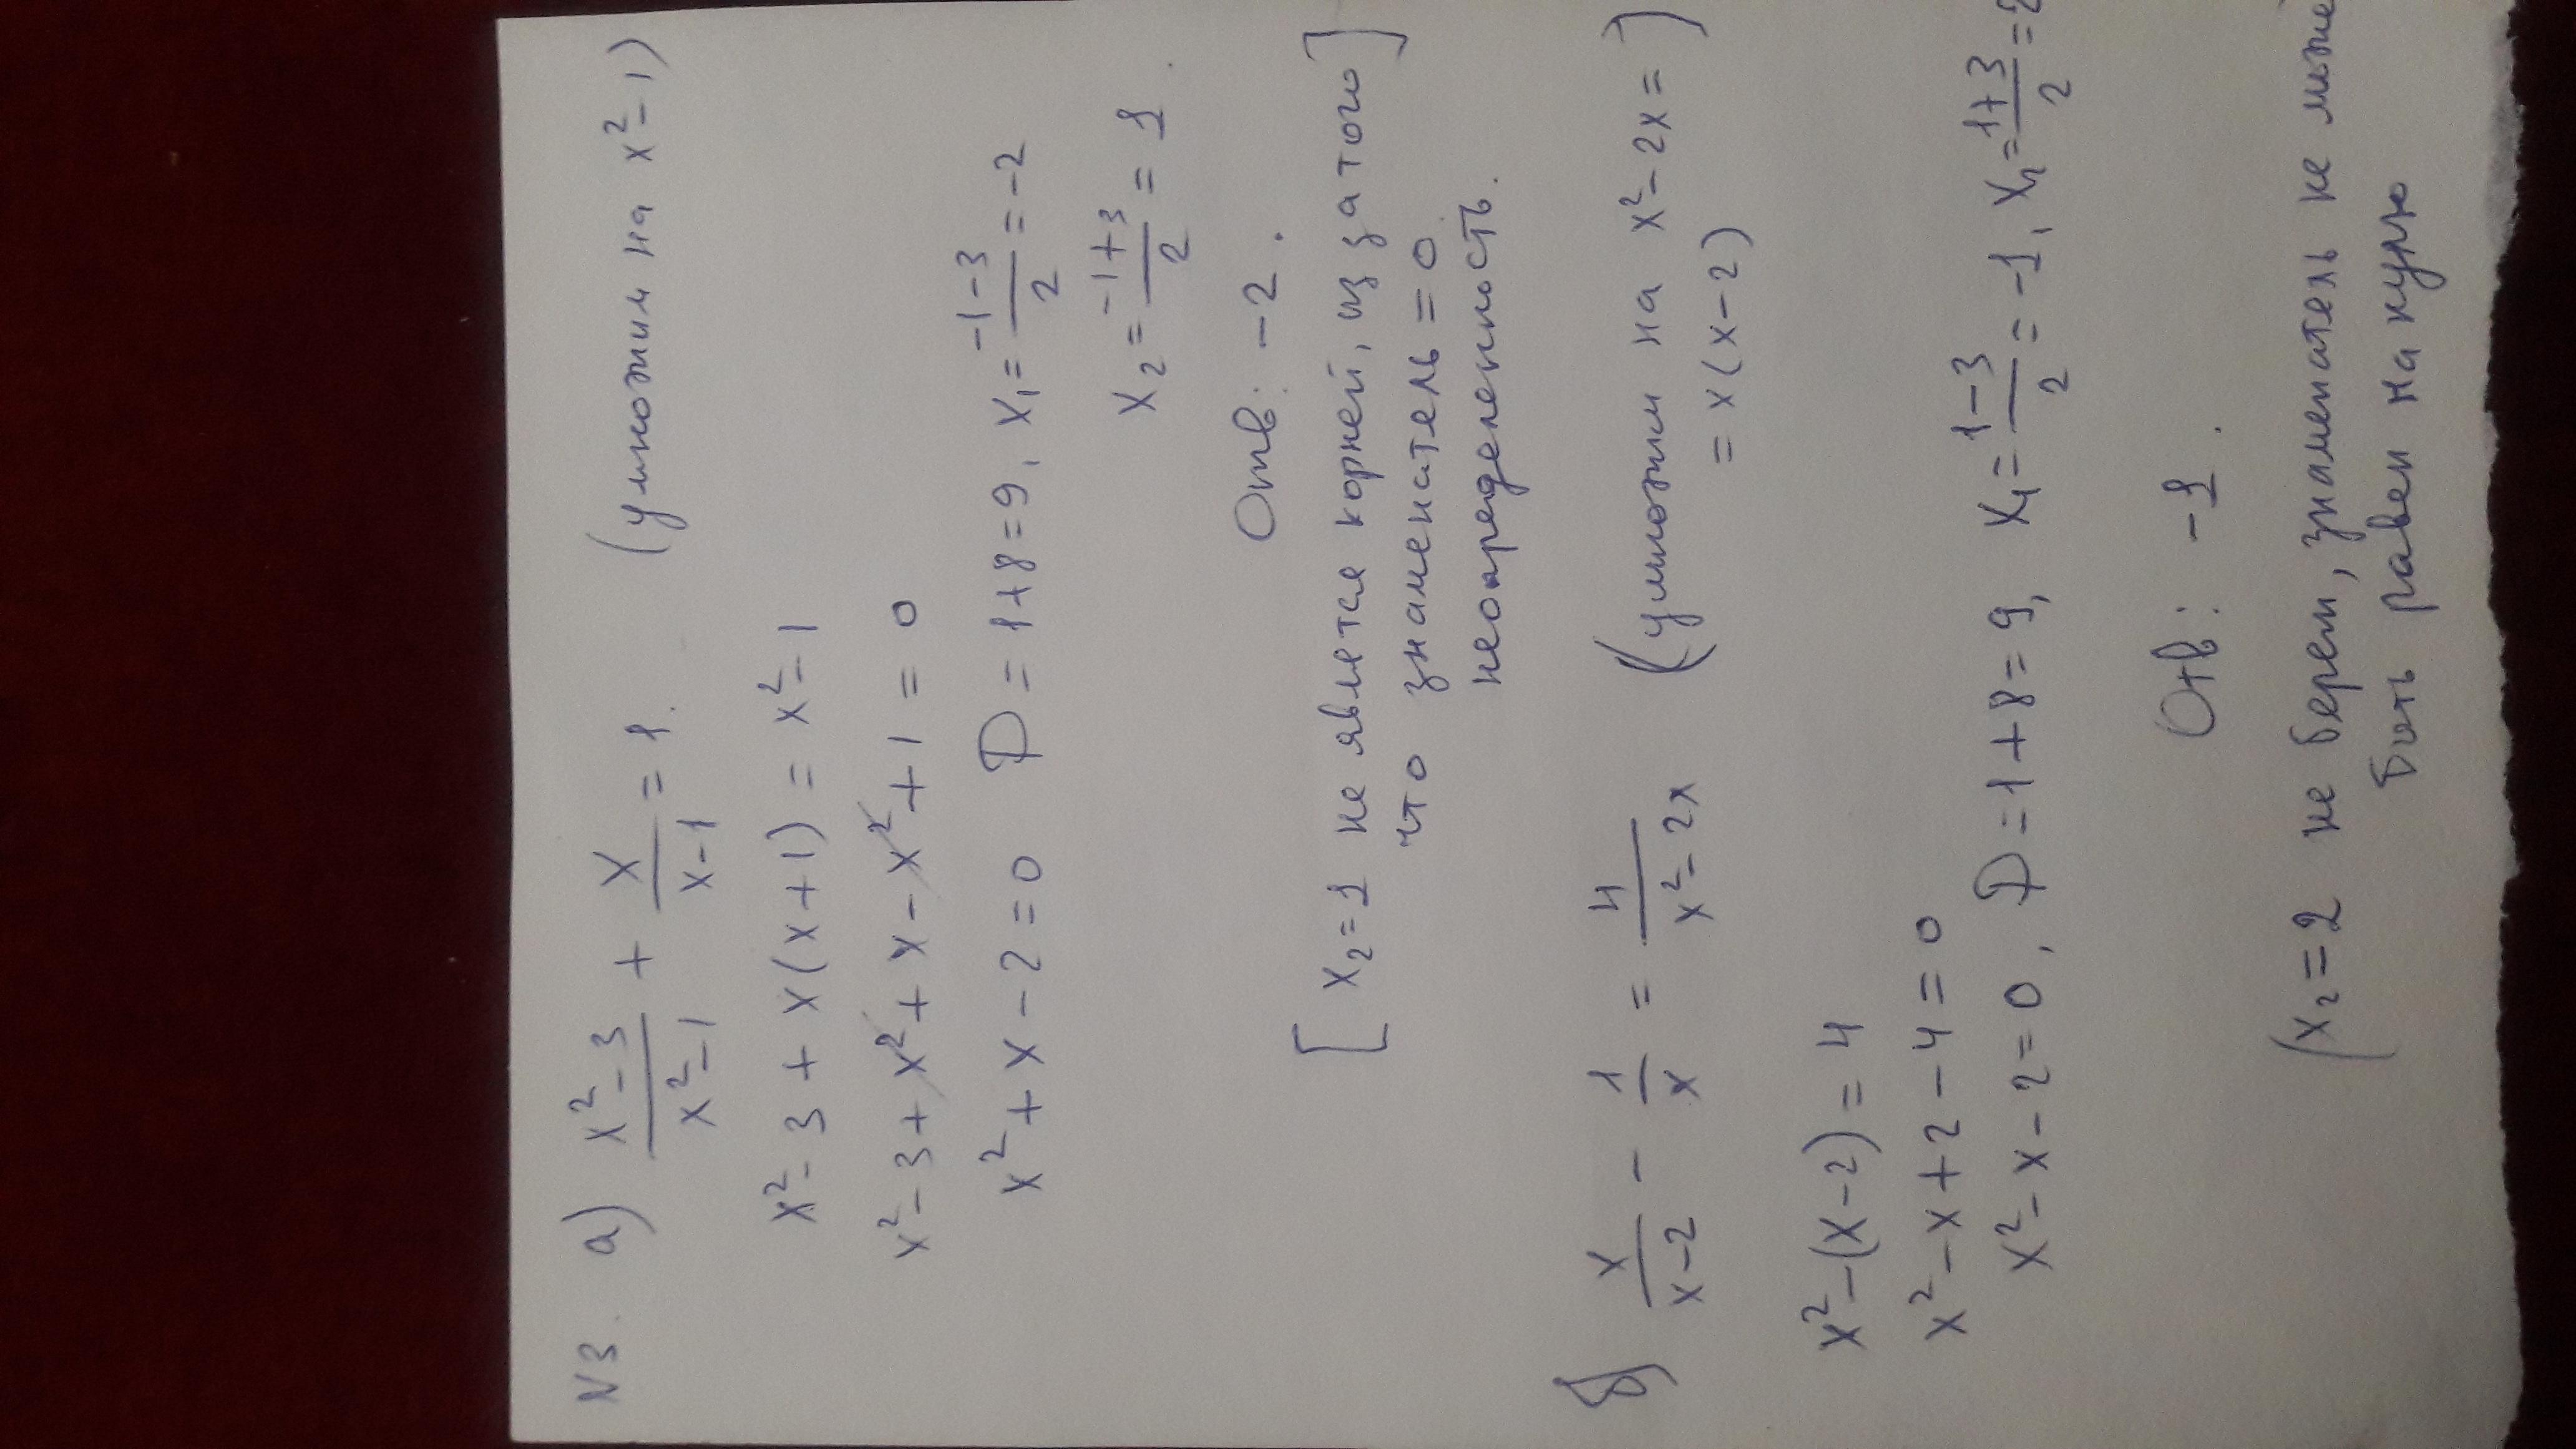 N3. а) (x²-3)/(x²-1) + x/(x-1) = 1. (умножим на x²-1)
x²-3 + x(x+1) = x²-1
x²-3 + x² + x - x² + 1 = 0
x² + x - 2 = 0 D = 1+8 = 9, x₁ = (-1-3)/2 = -2
x₂ = (-1+3)/2 = 1.
Отв: -2.
[x₂=1 не является корней, из за того]
что знаменатель = 0
неопределенность.
б) x/(x-2) - 1/x = 4/(x²-2x) (умножим на x²-2x =)
= x(x-2)
x²-(x-2) = 4
x²-x+2-4 = 0
x²-x-2=0, D = 1+8 = 9, x₁ = (1-3)/2 = -1, x₂ = (1+3)/2 = 2
Отв: -1.
(x₂=2 не берем, знаменатель не може
быть равен на нулю